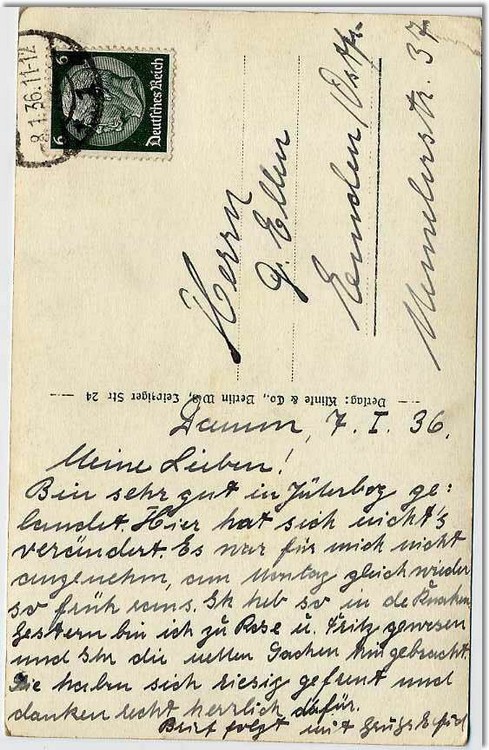 8.1.36.11-12
6
6
Deutsches Reich
Herrn
G. Ellen
Emden/Ostfr.
37
Verlag: Klinke & Co., Berlin W8, Leipziger Str 24
Damm, 7. I. 36.
Meine Lieben!
Bin sehr gut in Jüterbog ge:
landet. Hier hat sich nicht's
verändert. Es war für mich nicht
angenehm, am Montag gleich wieder
so früh raus. so in de Knochen
Gestern bin ich zu Rose u. Fritz gewesen
und die Sachen hingebracht.
Sie haben sich riesig gefreut und
danken recht herzlich dafür.
Brief folgt mit Gruß